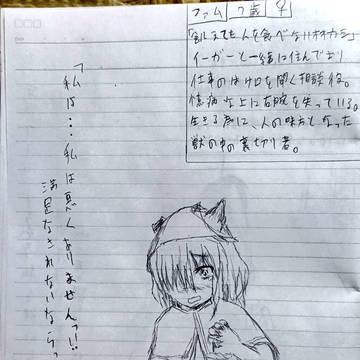 ファム 7歳 ♀
「飢えても人を食べないオオカミ」
イーガーと一緒に住んでおり
仕事のはけ口を聞く相談役。
臆病な上に右腕を失っている。
生きる為に、人の味方となった
獣の中の裏切り者。
「私は…私は悪くありませんっ!!
満足なされないなら、